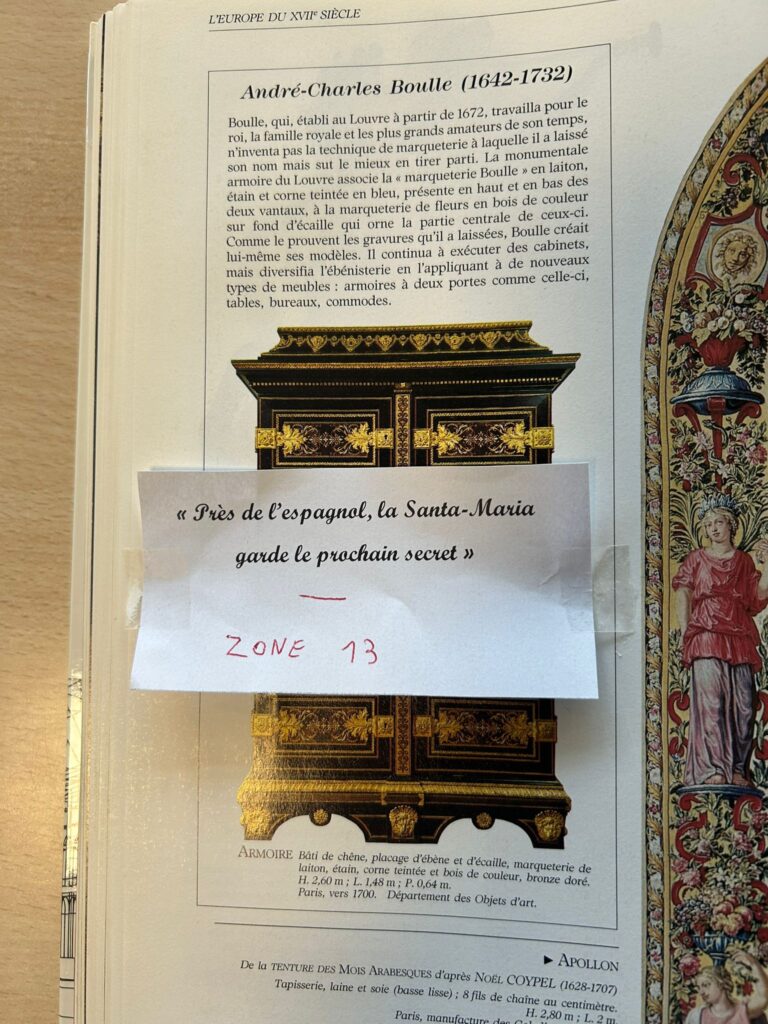 L'EUROPE DU XVIIe SIÈCLE
André-Charles Boulle (1642-1732)
Boulle, qui, établi au Louvre à partir de 1672, travailla pour le
roi, la famille royale et les plus grands amateurs de son temps,
n'inventa pas la technique de marqueterie à laquelle il a laissé
son nom mais sut le mieux en tirer parti. La monumentale
armoire du Louvre associe la « marqueterie Boulle » en laiton,
étain et corne teintée en bleu, présente en haut et en bas des
deux vantaux, à la marqueterie de fleurs en bois de couleur
sur fond d'écaille qui orne la partie centrale de ceux-ci.
Comme le prouvent les gravures qu'il a laissées, Boulle créait
lui-même ses modèles. Il continua à exécuter des cabinets,
mais diversifia l'ébénisterie en l'appliquant à de nouveaux
types de meubles : armoires à deux portes comme celle-ci,
tables, bureaux, commodes.
« Près de l'espagnol, la Santa-Maria
garde le prochain secret »
—
ZONE 13
ARMOIRE Bâti de chêne, placage d'ébène et d'écaille, marqueterie de
laiton, étain, corne teintée et bois de couleur, bronze doré.
H. 2,60 m ; L. 1,48 m ; P. 0,64 m.
Paris, vers 1700. Département des Objets d'art.
► APOLLON
De la TENTURE DES MOIS ARABESQUES d'après NOËL COYPEL (1628-1707)
Tapisserie, laine et soie (basse lisse) ; 8 fils de chaîne au centimètre.
H. 2,80 m ; L. 2 m.
Paris, manufacture des